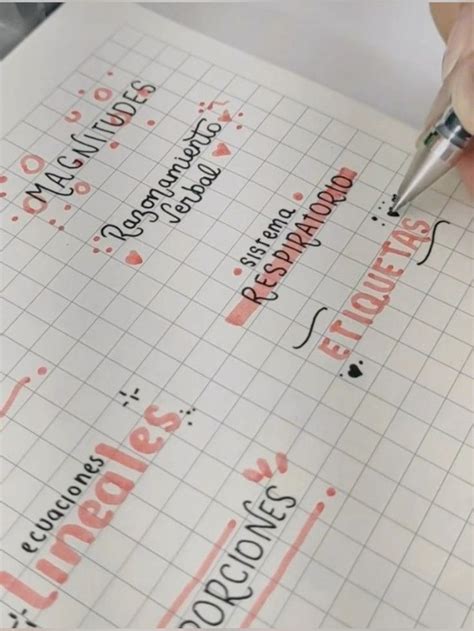 MAGNITUDES
Razonamiento
Verbal
sistema
RESPIRATORIO
ETIQUETAS
ecuaciones
Lineales
PORCIONES